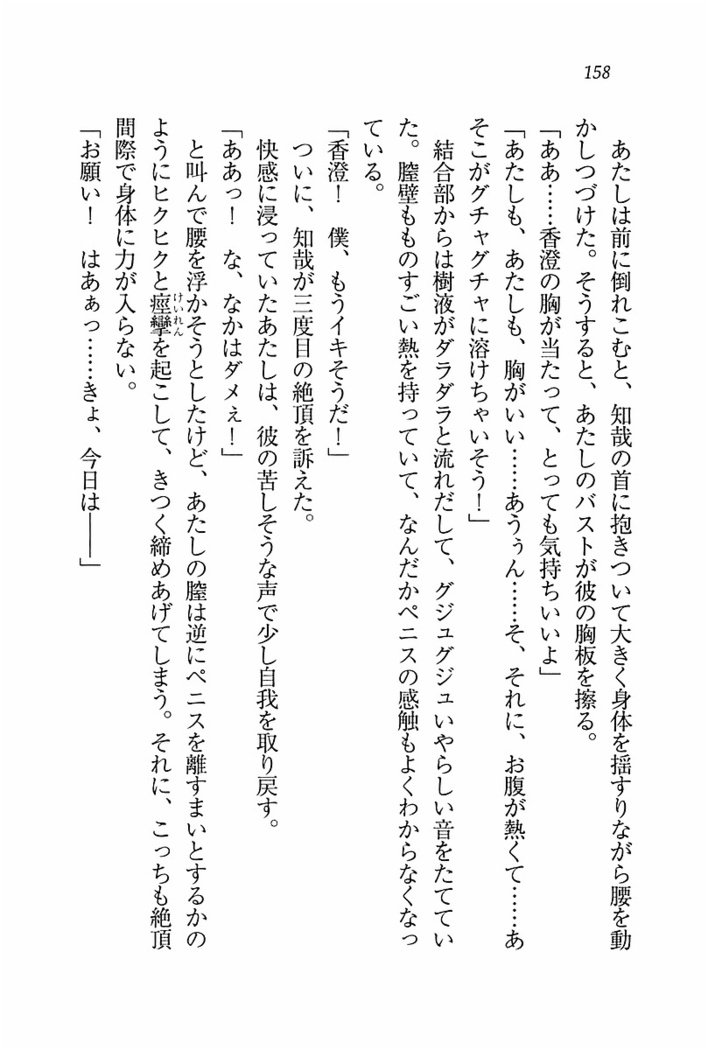 158
あたしは前に倒れこむと、知哉の首に抱きついて大きく身体を揺すりながら腰を動
かしつづけた。そうすると、あたしのバストが彼の胸板を擦る。
「ああ……香澄の胸が当たって、とっても気持ちいいよ」
「あたしも、あたしも、胸がいい……あうぅん……そ、それに、お腹が熱くて……あ
そこがグチャグチャに溶けちゃいそう！」
結合部からは樹液がダラダラと流れだして、グジュグジュいやらしい音をたててい
た。膣壁もものすごい熱を持っていて、なんだかペニスの感触もよくわからなくなっ
ている。
「香澄！　僕、もうイキそうだ！」
ついに、知哉が三度目の絶頂を訴えた。
快感に浸っていたあたしは、彼の苦しそうな声で少し自我を取り戻す。
「ああっ！　な、なかはダメぇ！」
と叫んで腰を浮かそうとしたけど、あたしの膣は逆にペニスを離すまいとするかの
ようにヒクヒクと痙攣けいれんを起こして、きつく締めあげてしまう。それに、こっちも絶頂
間際で身体に力が入らない。
「お願い！　はあぁっ……きょ、今日は――」